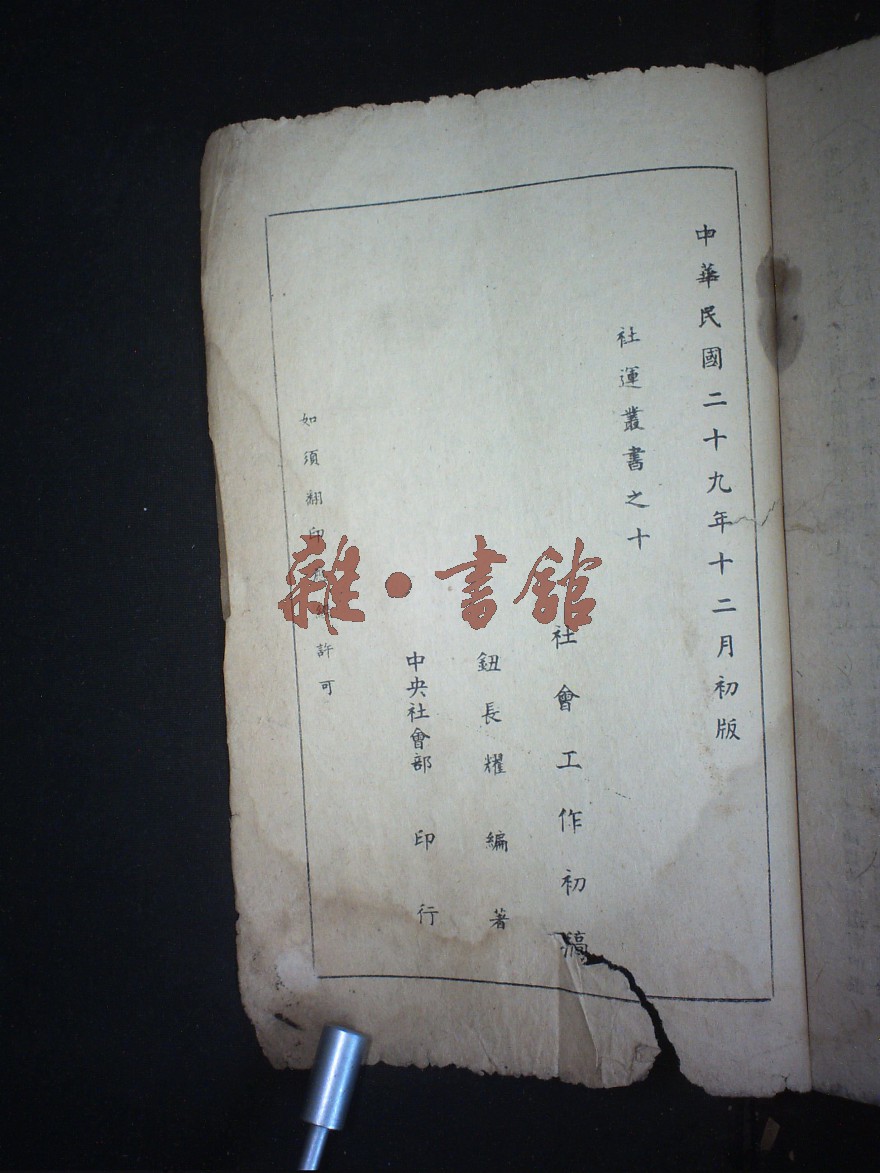 中華民國二十九年十二月初版
社運叢書之十
社會工作初稿
鈕長耀編著
中央社會部印行
如須翻印 許可
雜·書館